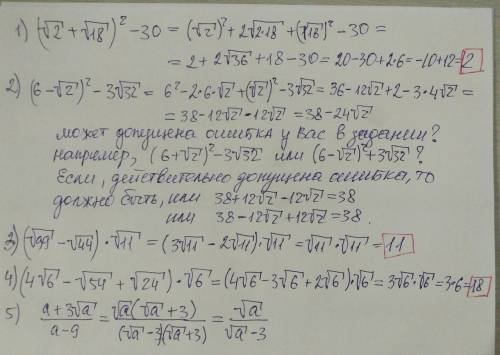 1) (√2 + √18)² - 30 = (√2)² + 2√2·18 + (√18)² - 30 =
= 2 + 2√36 + 18 - 30 = 20 - 30 + 2·6 = -10 + 12 = 2
2) (6 - √2)² - 3√32 = 6² - 2·6·√2 + (√2)² - 3√32 = 36 - 12√2 + 2 - 3·4√2 =
= 38 - 12√2 - 12√2 = 38 - 24√2
может допущена ошибка у вас в задании?
например, (6+√2)² - 3√32 или (6-√2)² + 3√32?
Если, действительно допущена ошибка, то
должно быть, или 38 + 12√2 - 12√2 = 38
или 38 - 12√2 + 12√2 = 38.
3) (√99 - √44)·√11 = (3√11 - 2√11)·√11 = √11·√11 = 11
4) (4√6 - √54 + √24)·√6 = (4√6 - 3√6 + 2√6)·√6 = 3√6·√6 = 3·6 = 18
5) (a + 3√a)/(a - 9) = √a(√a + 3)/((√a - 3)(√a + 3)) = √a/(√a - 3)